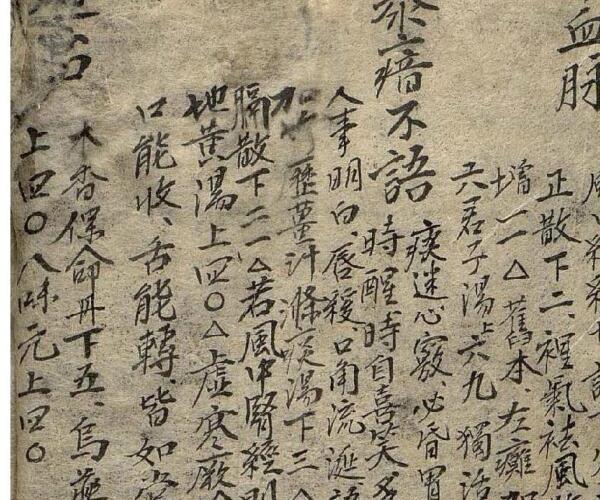 血脉
正散下二、裡氣祛風
壇一一△舊本、左癱
六君子湯上六九 獨活
暴瘖不語
痰迷心竅、必昏冒
時醒時自喜笑多
人事明白、唇緩、口角流涎、語
加竹瀝薑汁滌痰湯下三八
膈散下二一△若風中腎經則
地黃湯上四〇△虛寒厥
口能收、舌能轉、皆如常
木香保命丹下五、烏藥
上四〇八味元上四〇